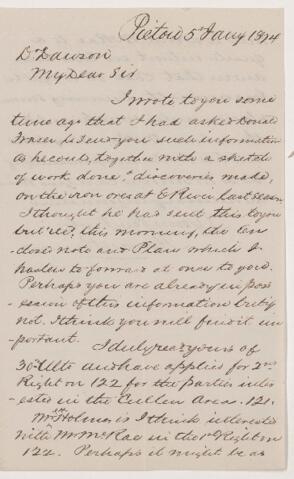 Pictou 5 Jany 1874
Dr Dawson
My Dear Sir
I wrote to you some
time ago that I had asked Donald
Fraser to send you such information
as he could, together with a sketch
of work done & discoveries made,
on the iron ores at E River last season.
I thought he had sent this to you
but recd, this morning, the en-
-closed note and Plan which I
hasten to forward at once to you.
Perhaps you are already in poss-
-ession of this information but if
not, I think you will find it im-
-portant.
I duly recd yours of
30th Ulto and have applied for 2nd
Right on 122 for the parties inter-
-ested in the Cullen Area. 121.
Mr Holmes is I think interested
with Mr McRae in the 1st Right on
122. Perhaps it might be as